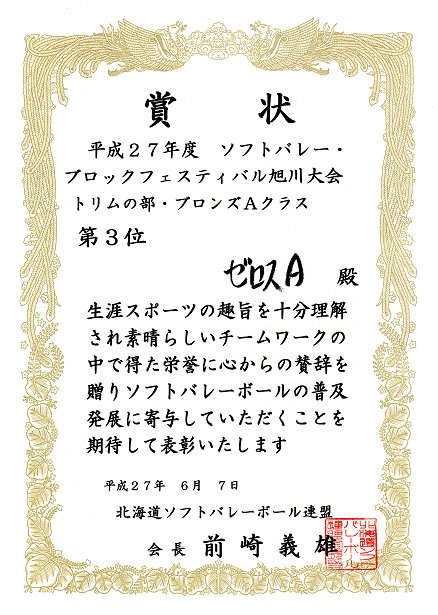 賞状
平成２７年度　ソフトバレー・
ブロックフェスティバル旭川大会
トリムの部・ブロンズAクラス
第３位
ゼロスA 殿
生涯スポーツの趣旨を十分理解
され素晴らしいチームワークの
中で得た栄誉に心からの賛辞を
贈りソフトバレーボールの普及
発展に寄与していただくことを
期待して表彰いたします
平成２７年　６月　７日
北海道ソフトバレーボール連盟
会長　前崎義雄